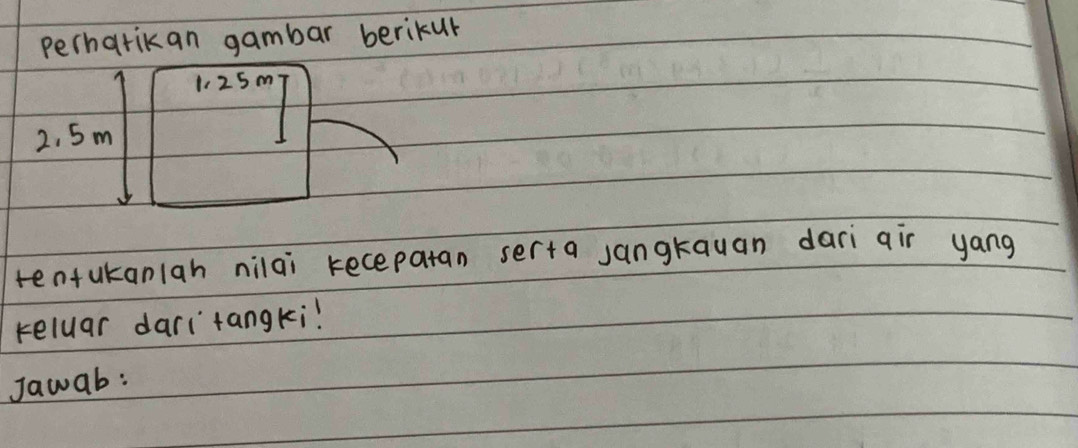 Perhatikan gambar berikut
1.25m
2.5m
tentukanlah nilai kecepatan serta jangkauan dari air yang
keluar dari tangki!
Jawab: